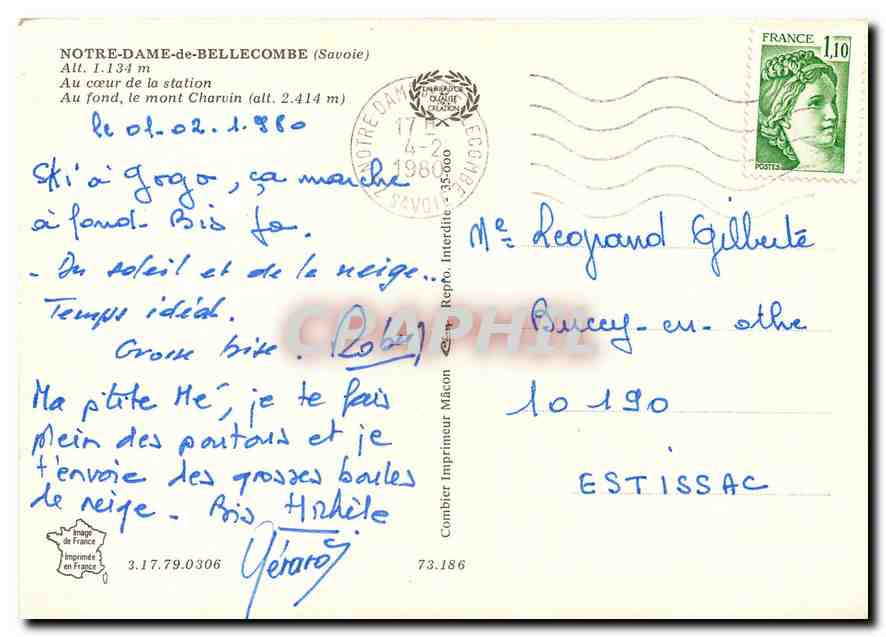 NOTRE-DAME-de-BELLECOMBE (Savoie)
Alt. 1.134 m
Au cœur de la station
Au fond, le mont Charvin (alt. 2.414 m)
le 01-02.1.980
Ski à gogo, ça marche
à fond. Bis
- Du soleil et de la neige...
Temps idéal.
Grosse bise.
Ma p'tite Mé, je te fais
plein des poutous et je
t'envoie des grosses boules
de neige. Bis Michèle
Gérard
Image
de France
Imprimée
en France
3.17.79.0306
73.186
Combier Imprimeur Mâcon Repro. Interdite - 35-000
NOTRE-DAME BELLECOMBE
17 H
4-2
1980
SAVOIE
QUALITÉ
CRÉATION
FRANCE
1,10
POSTES
Me Legrand Gilberte
Bucey-en-othe
10190
ESTISSAC
CPAPHIL